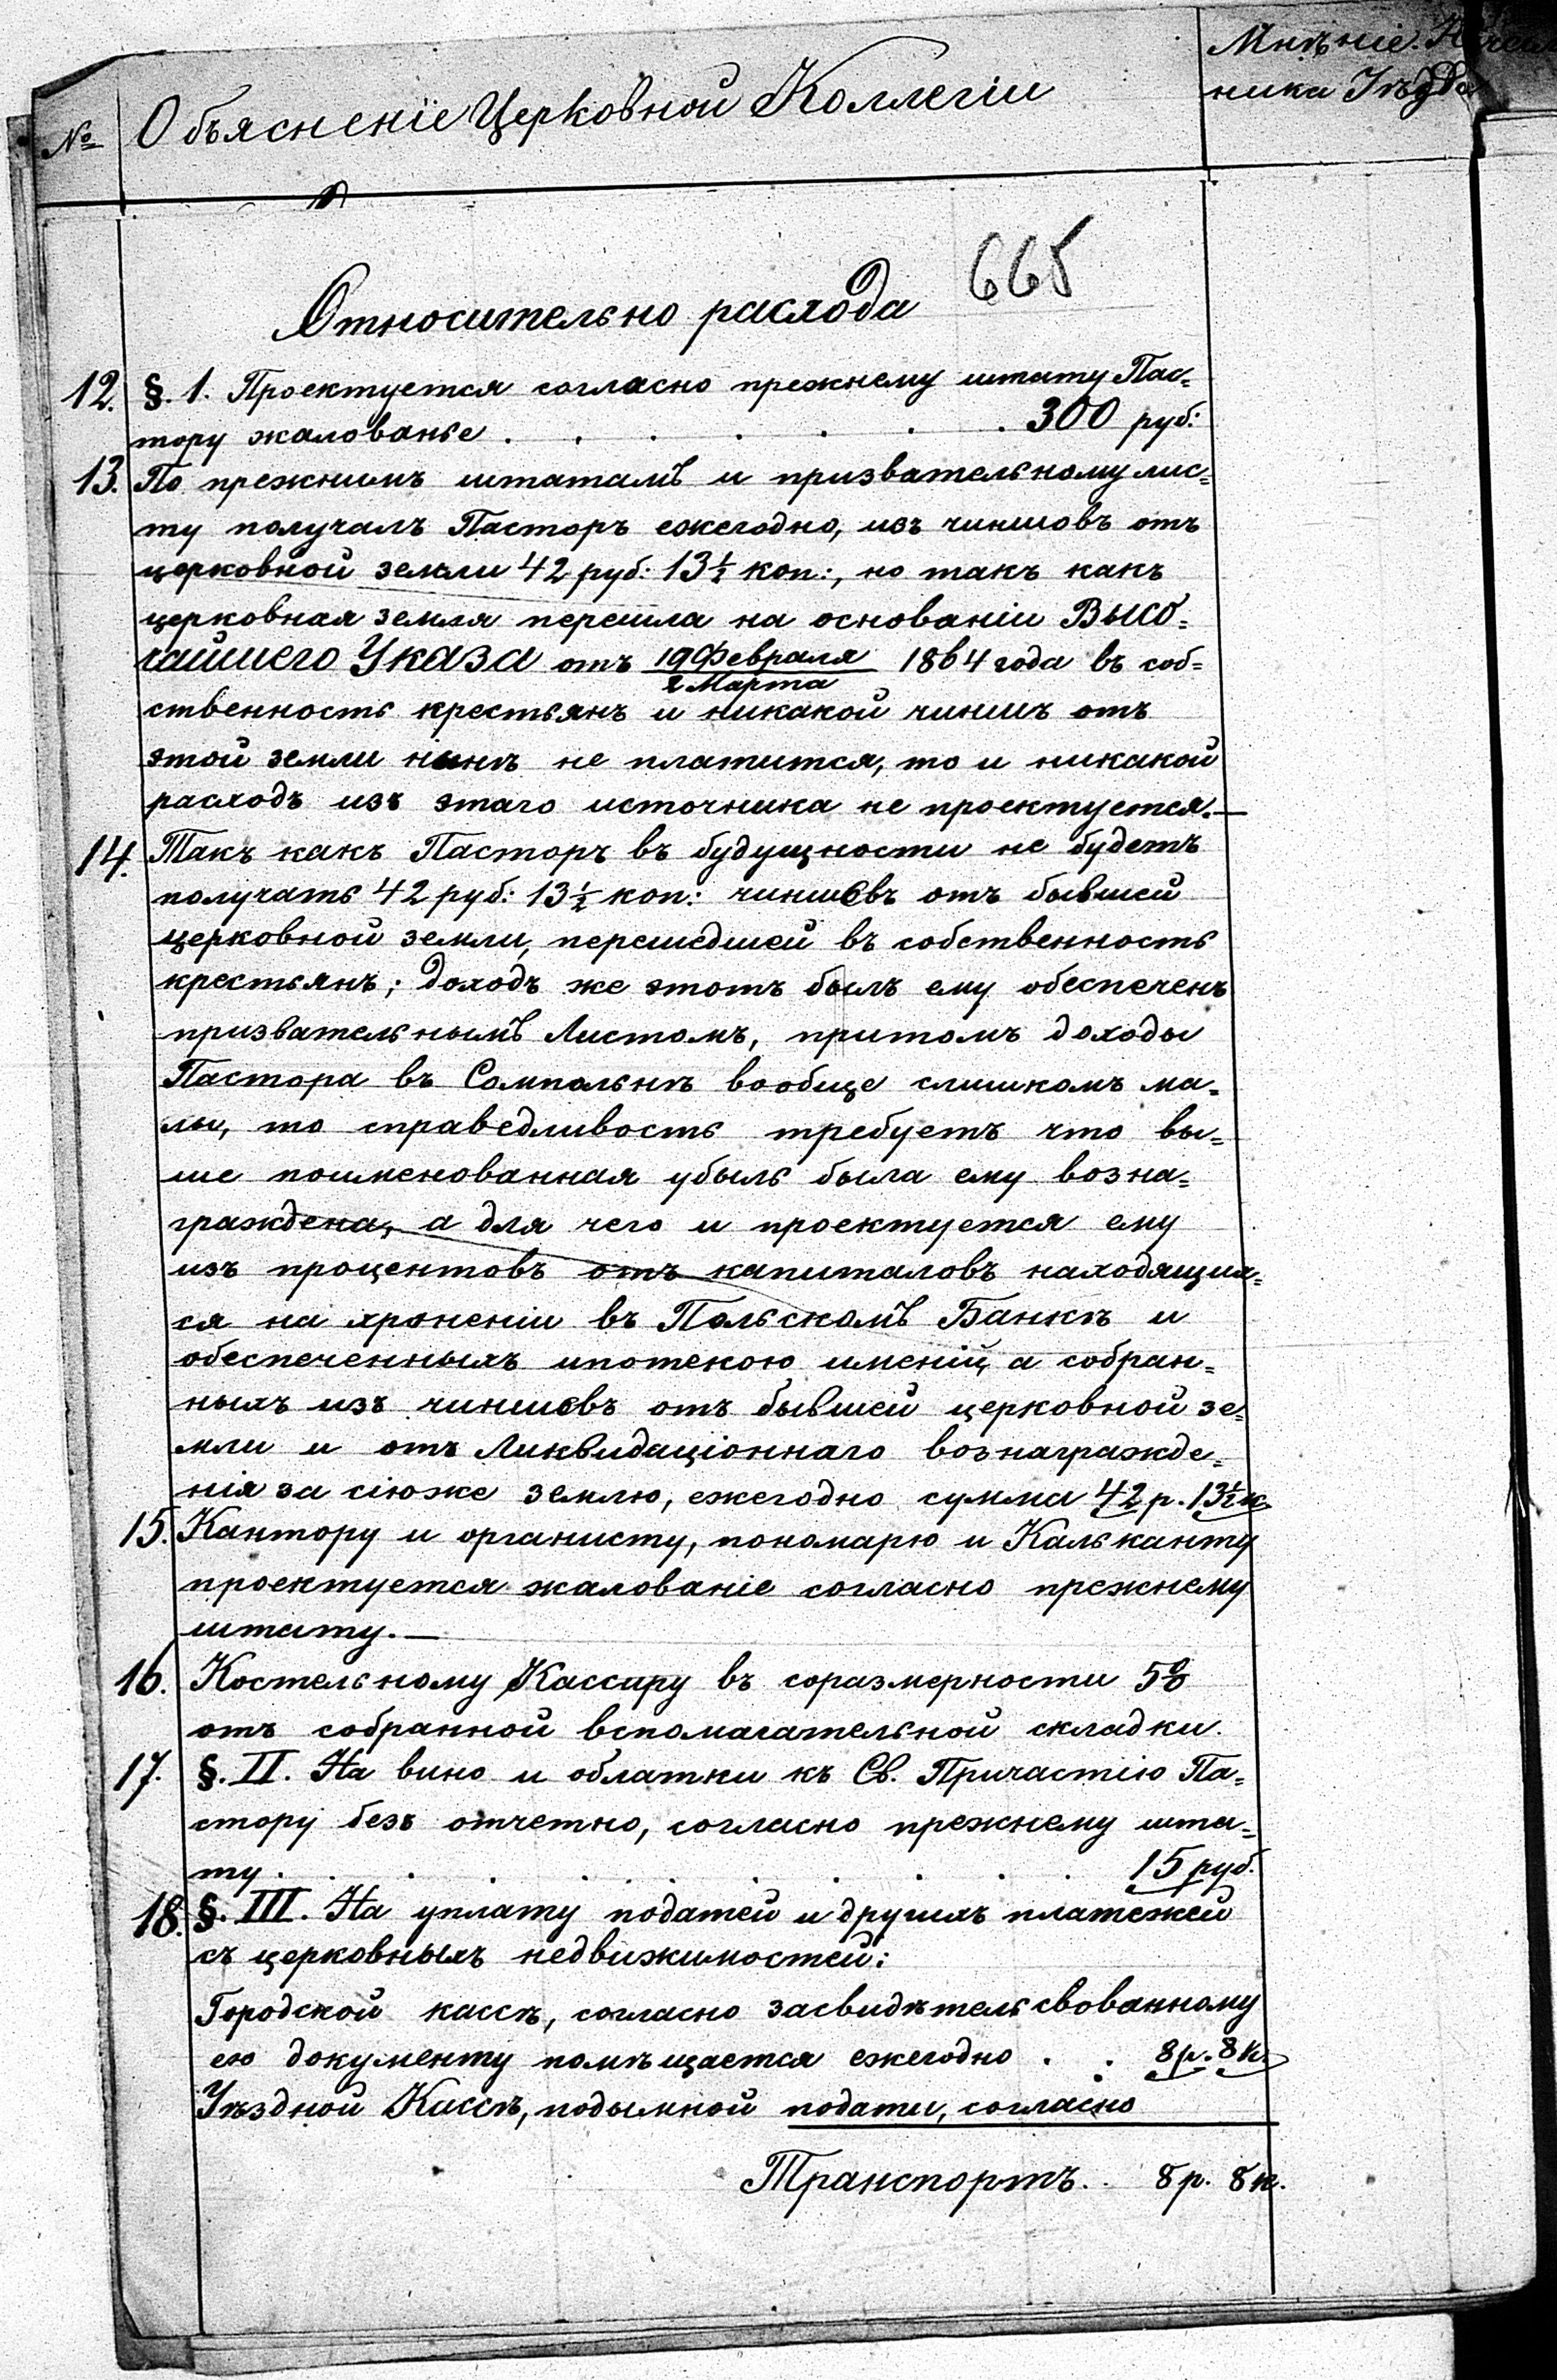 Мнѣніе Началь
№ Объясненіе Церковной Коллегіи
ника Уѣзда
665
Относительно расхода
12. §. 1. Проектуется согласно прежнему штату Пас=
тору жалованье . . . . . . . 300 руб:
13. По прежнимъ штатамъ и призвательному лис=
ту получалъ Пасторъ ежегодно, изъ чиншовъ отъ
церковной земли 42 руб: 13½ коп:, но такъ какъ
церковная земля перешла на основаніи Высо=
чайшего Указа отъ 19 Февраля / 2 Марта 1864 года въ соб=
ственность крестьянъ и никакой чиншъ отъ
этой земли нынѣ не платится, то и никакой
расходъ изъ этаго источника не проектуется.—
14. Такъ какъ Пасторъ въ будущности не будетъ
получать 42 руб: 13½ коп: чиншовъ отъ бывшей
церковной земли, перешедшей въ собственность
крестьянъ; доходъ же этотъ былъ ему обеспеченъ
призвательнымъ Листомъ, притомъ доходы
Пастора въ Сомпольнѣ вообще слишкомъ ма=
лы, то справедливость требуетъ что вы=
ше поименованная убыль была ему возна=
граждена, а для чего и проектуется ему
изъ процентовъ отъ капиталовъ находящих=
ся на храненіи въ Польскомъ Банкѣ и
обеспеченныхъ ипотекою именій, а собран=
ныхъ изъ чиншовъ отъ бывшей церковной зе=
мли и отъ Ликвидаціоннаго вознагражде=
нія за сіюже землю, ежегодно сумма 42 р. 13½ к.
15. Кантору и органисту, пономарю и Кальканту
проектуется жалованіе согласно прежнему
штату.—
16. Костельному Кассиру въ соразмерности 5%
отъ собранной вспомагательной складки.
17. §. II. На вино и облатки къ Св. Причастію Па=
стору безъ отчетно, согласно прежнему шта=
ту . . . . . . . . . . 15 руб.
18. §. III. На уплату податей и другихъ платежей
съ церковныхъ недвижимостей:
Городской кассѣ, согласно засвидѣтельсвованному
ею документу помѣщается ежегодно . . 8 р. 8 к.
Уѣздной Кассѣ, подымной подати, согласно
Транспортъ . . 8 р. 8 к.